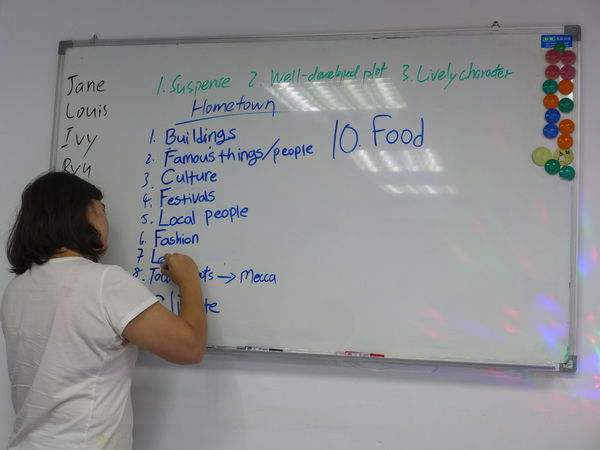 Jane
Louis
Ivy
1. Suspense 2. Well-developed plot 3. Lively character
Hometown
1. Buildings
2. Famous things/people
3. Culture
4. Festivals
5. Local people
6. Fashion
7.
8. → Mecca
10. Food